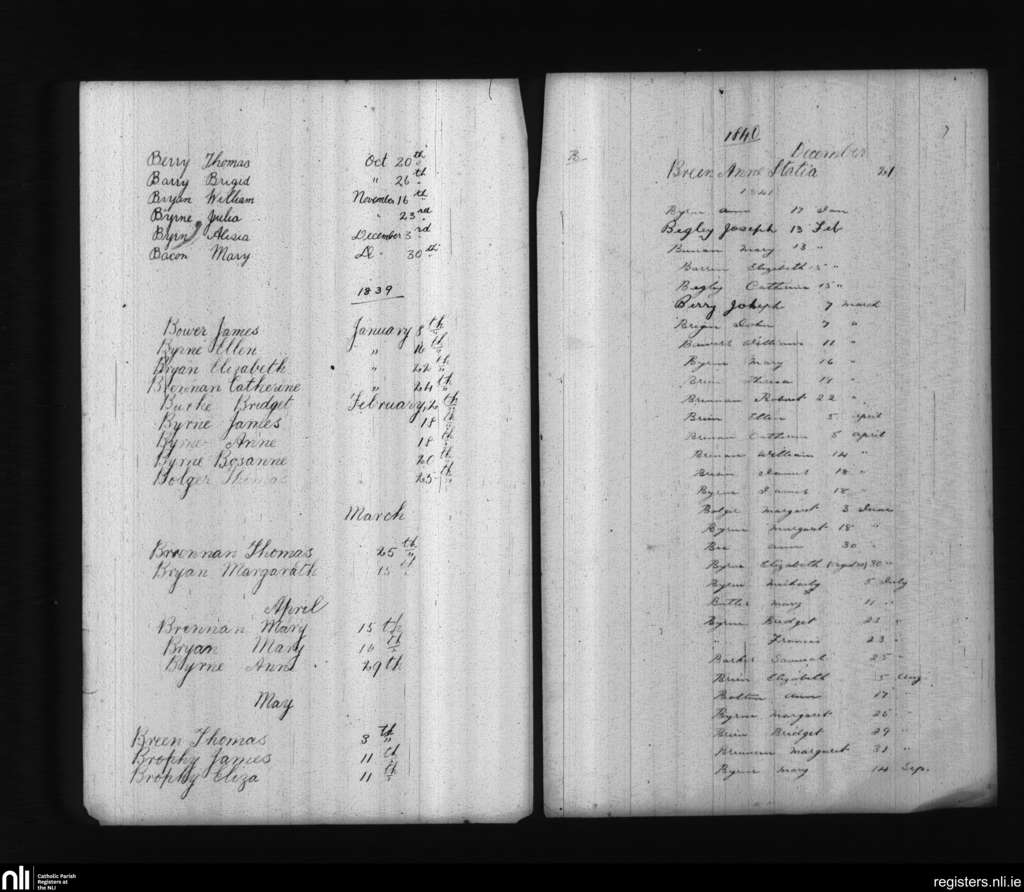 Berry Thomas Oct 20th
Barry Brigid " 26th
Bryan William November 16th
Byrne Julia " 23rd
Byrn Alisia December 3rd
Bacon Mary Do 30th
1839
Bower James January 8th
Byrne Ellen " 16th
Bryan Elizabeth " 22th
Brennan Catherine " 24th
Burke Bridget February 2th
Byrne James 18th
Byrne Anne 18th
Byrne Bosanne 20th
Bolger Thomas 25th
March
Breennan Thomas 25th
Bryan Margarath 15th
April
Brennan Mary 15th
Bryan Mary 16th
Byrne Anne 29th
May
Breen Thomas 3th
Brophy James 11th
Brophy Eliza 11th
B
1840
December
Breen Anne Statia 21
1841
Byrne Ann 17 Jan
Begley Joseph 13 Feb
Mary 13 "
Barren Elizabeth 15 "
Begley Catherine 15 "
Berry Joseph 7 March
John 7 "
William 11 "
Byrne Mary 16 "
Brien 17 "
Brennan Robert 22 "
Brien Ellen 5 April
Brennan Catherine 5 April
Brennan William 14 "
Brien James 18 "
Byrne James 18 "
Bolger Margaret 3 June
Byrne Margaret 18 "
Bee Ann 30 "
Byrne Elizabeth 30 "
Byrne 5 July
Butler Mary 11 "
Byrne Bridget 23 "
" Francis 23 "
Barker Samuel 25 "
Brien Elizabeth 5 Aug
Bolton Ann 17 "
Byrne Margaret 26 "
Brien Bridget 29 "
Brennan Margaret 31 "
Byrne Mary 14 Sep.
nli
Catholic Parish
Registers at
the NLI
registers.nli.ie